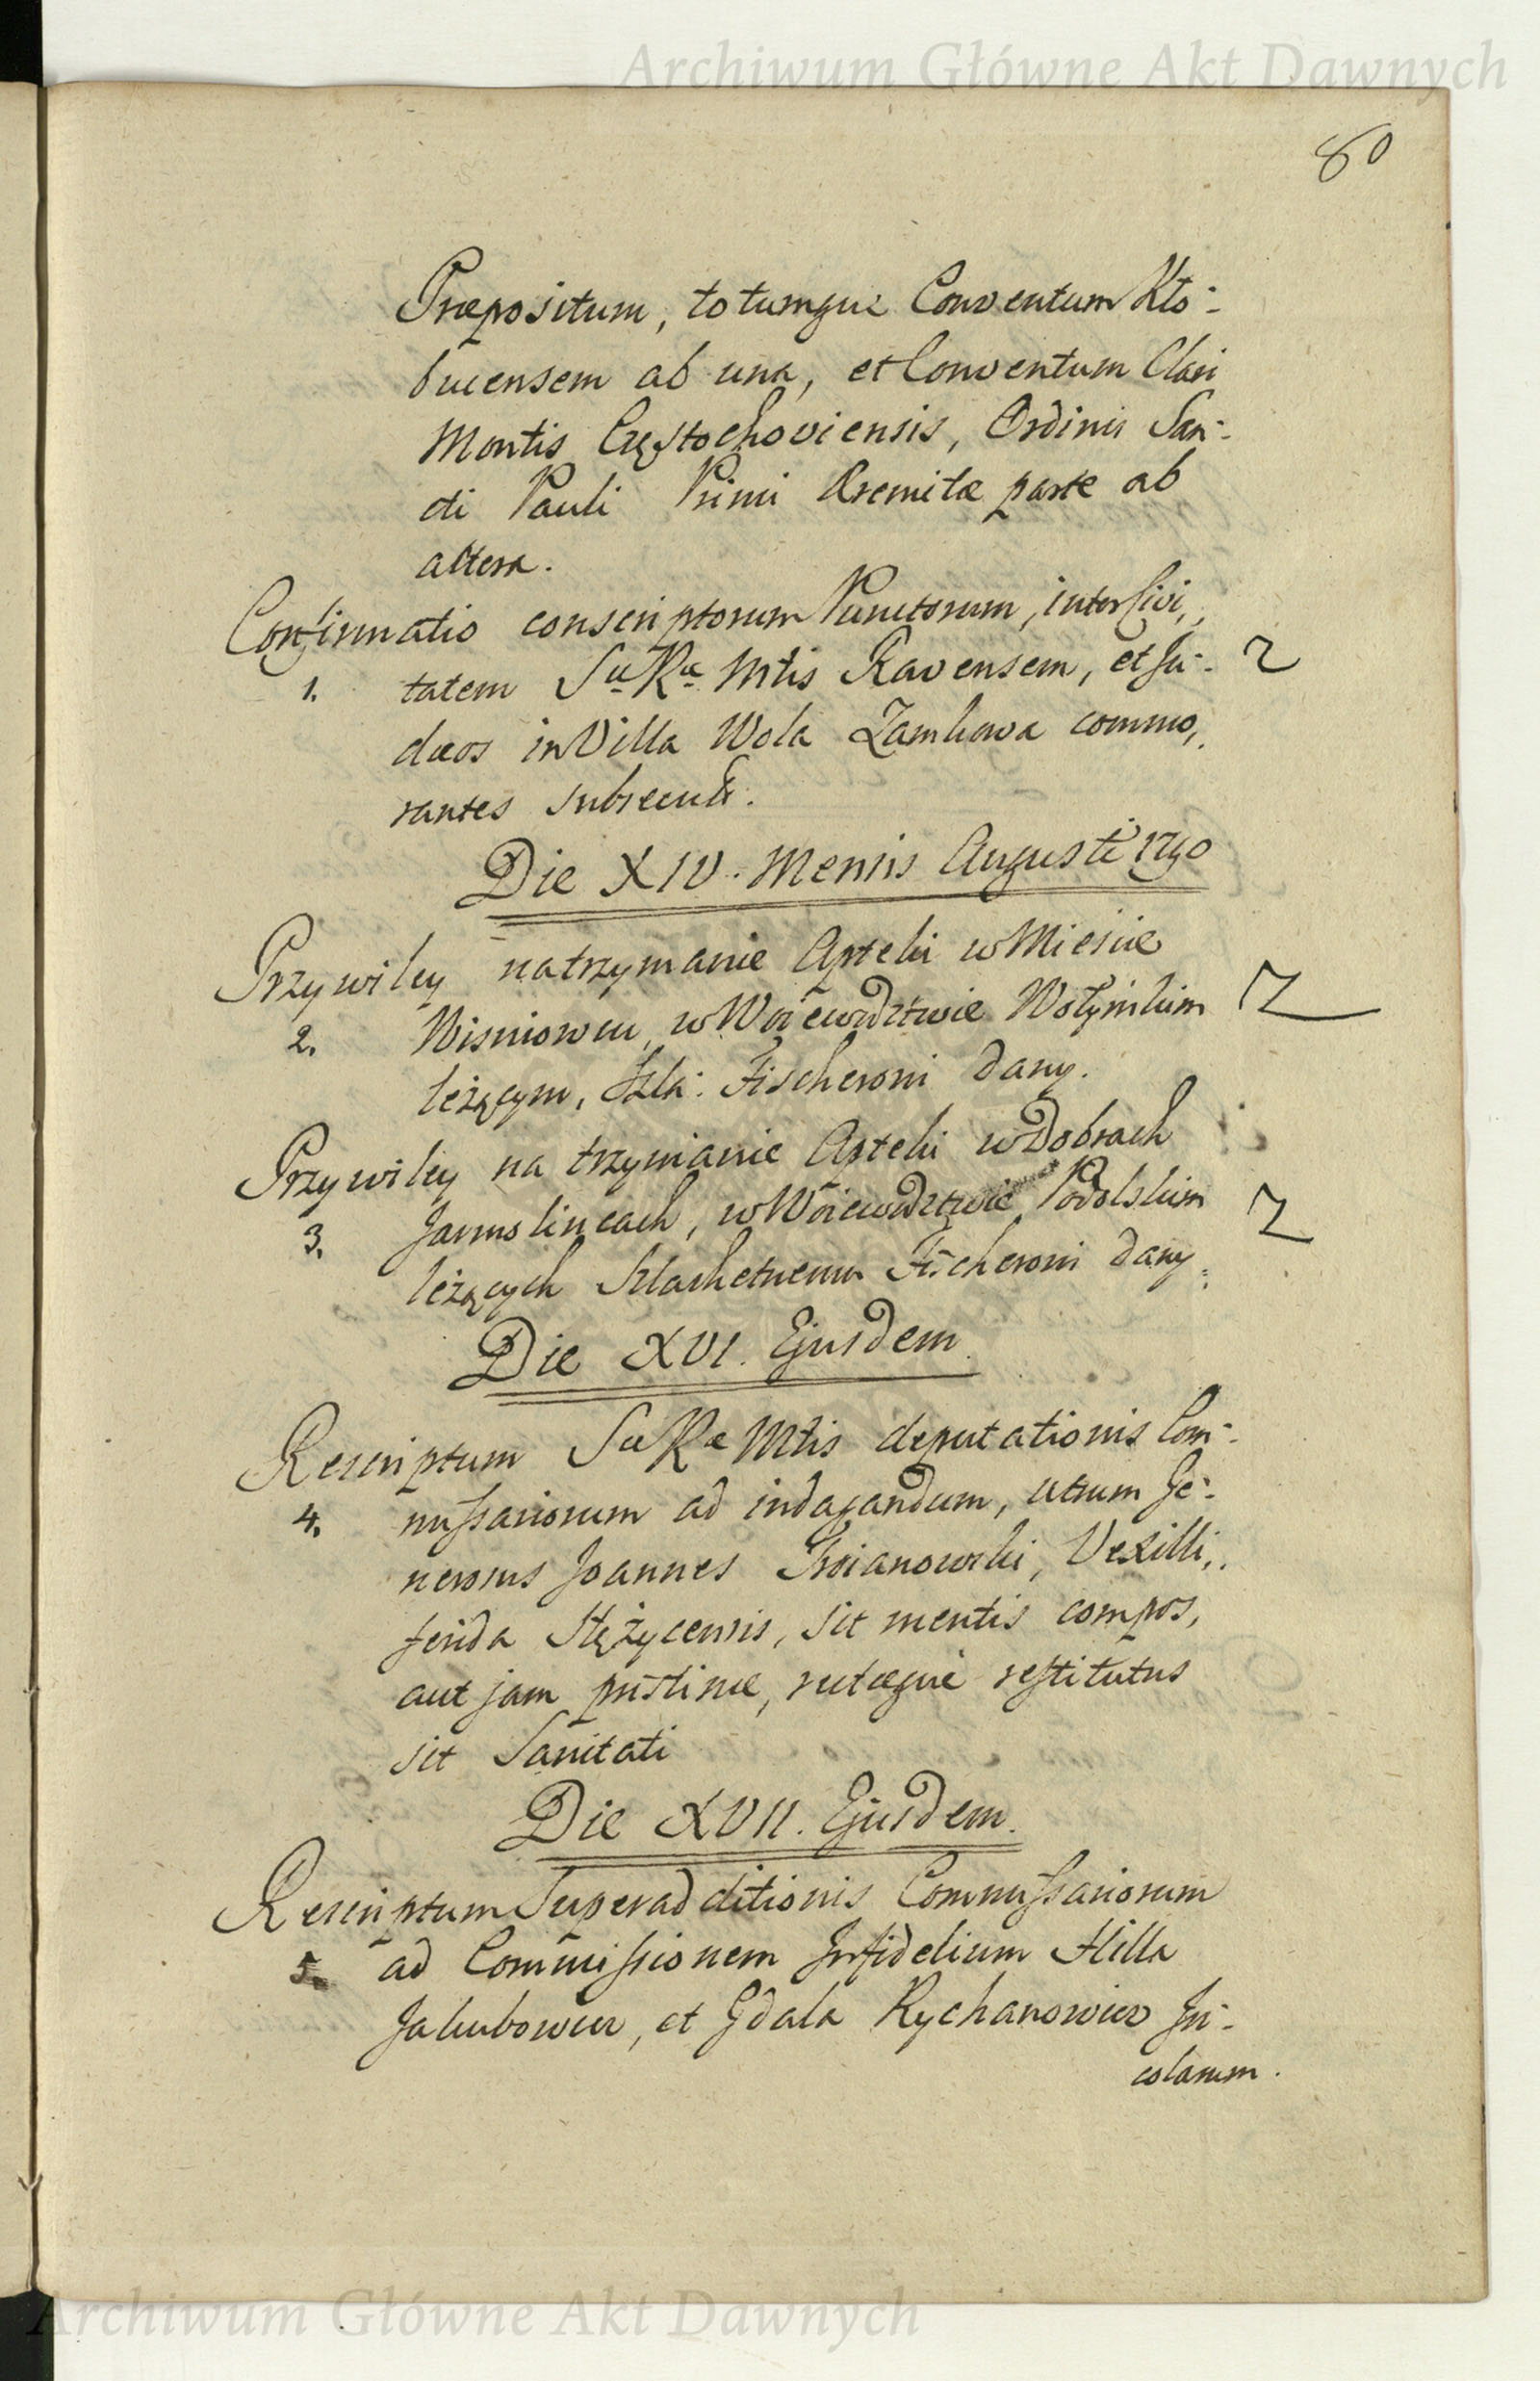 Archiwum Główne Akt Dawnych
80
Præpositum, totumque Conventum Kło-
bucensem ab una, et Conventum Clari
Montis Częstochoviensis, Ordinis San-
cti Pauli Primi Eremitæ parte ab
altera.
Confirmatio conscriptorum Punctorum, inter Civi,
1. tatem Sæ Ræ Mtis Ravensem, et Ju-
dæos in Villa Wola Zamkowa commo,
rantes subsecuta.
Die XIV. Mensis Augusti 1790
Przywiley na trzymanie Apteki w Mieście
2. Wisniowcu, w Woiewdztwie Wołynskim
leżącym, Szla: Fischeroni dany.
Przywiley na trzymanie Apteki w Dobrach
3. Jarmolincach, w Woiewdztwie Podolskim
leżących Szlachetnemu Fischeroni dany.
Die XVI. Ejusdem.
Rescriptum Sæ Ræ Mtis deputationis Com-
4. missariorum ad indagandum, utrum Ge-
nerosus Joannes Troianowski, Vexilli,
ferida Stężycensis, sit mentis compos,
aut jam pristinæ, rectæque restitutus
sit Sanitati
Die XVII. Ejusdem.
Rescriptum Superadditionis Commissariorum
5. ad Commissionem Infidelium Hilla
Jakubowicz, et Gdala Rychanowicz In-
colarum.
Archiwum Główne Akt Dawnych